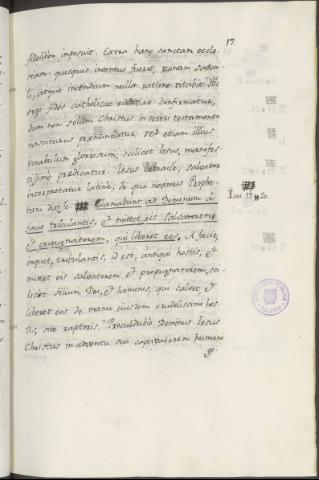 17.
fidelium imposuit. Extra hanc sanctam eccle-
siam, quisquis inventus fuerit, ruinam sæcu-
li, atque incendium nulla ratione vitabit. Hic
ergo fides catholicæ ecclesiæ confirmatur,
dum non solum Christus in veteri testamento
nasciturus prænuntiatur: sed etiam illius
vocabulum gloriosum, scilicet Iesus, manifes-
tissimè prædicatur. Iesus hebraicè, salvator
interpretatur latinè, de quo noverimus Prophe-
tam dixisse Clamabunt ad Dominum à
facie tribulantis, et mittet eis Salvatorem,
et propugnatorem, qui liberet eos. A facie,
inquit, tribulantis, id est, antiqui hostis, et
mittet eis salvatorem et propugnatorem, sci-
licet filium Dei, et hominis, qui salvet et
liberet eos de manu ejusdem crudelissimi hos-
tis, sive raptoris. Proculdubio Dominus Iesus
Christus in adventu suo captivatorem humani
Isai 19 v 20.